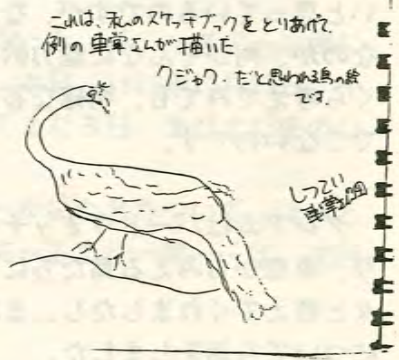 これは、私のスケッチブックをとりあげて
例の車掌さんが描いた
クジャク。だと思われる鳥の絵
です。
しつこい
車掌さん